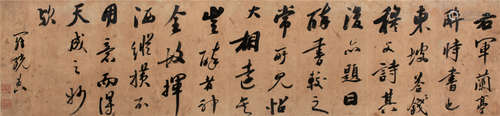 右軍蘭亭
醉時書也
東坡答錢
穆父詩其
後亦題曰
醉書較之
常所見帖
大相遠矣
豈醉者神
全故揮
洒縱橫不
用意而得
天成之妙
歟